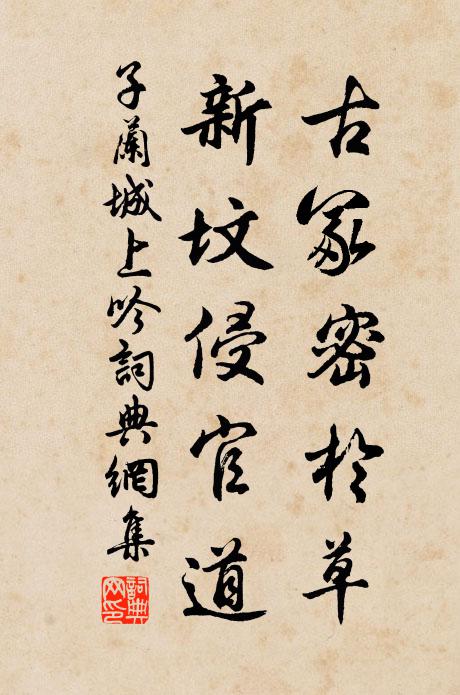 古冢密於草
新墳侵官道
子蘭城上吟詞典網集
詞典
网印